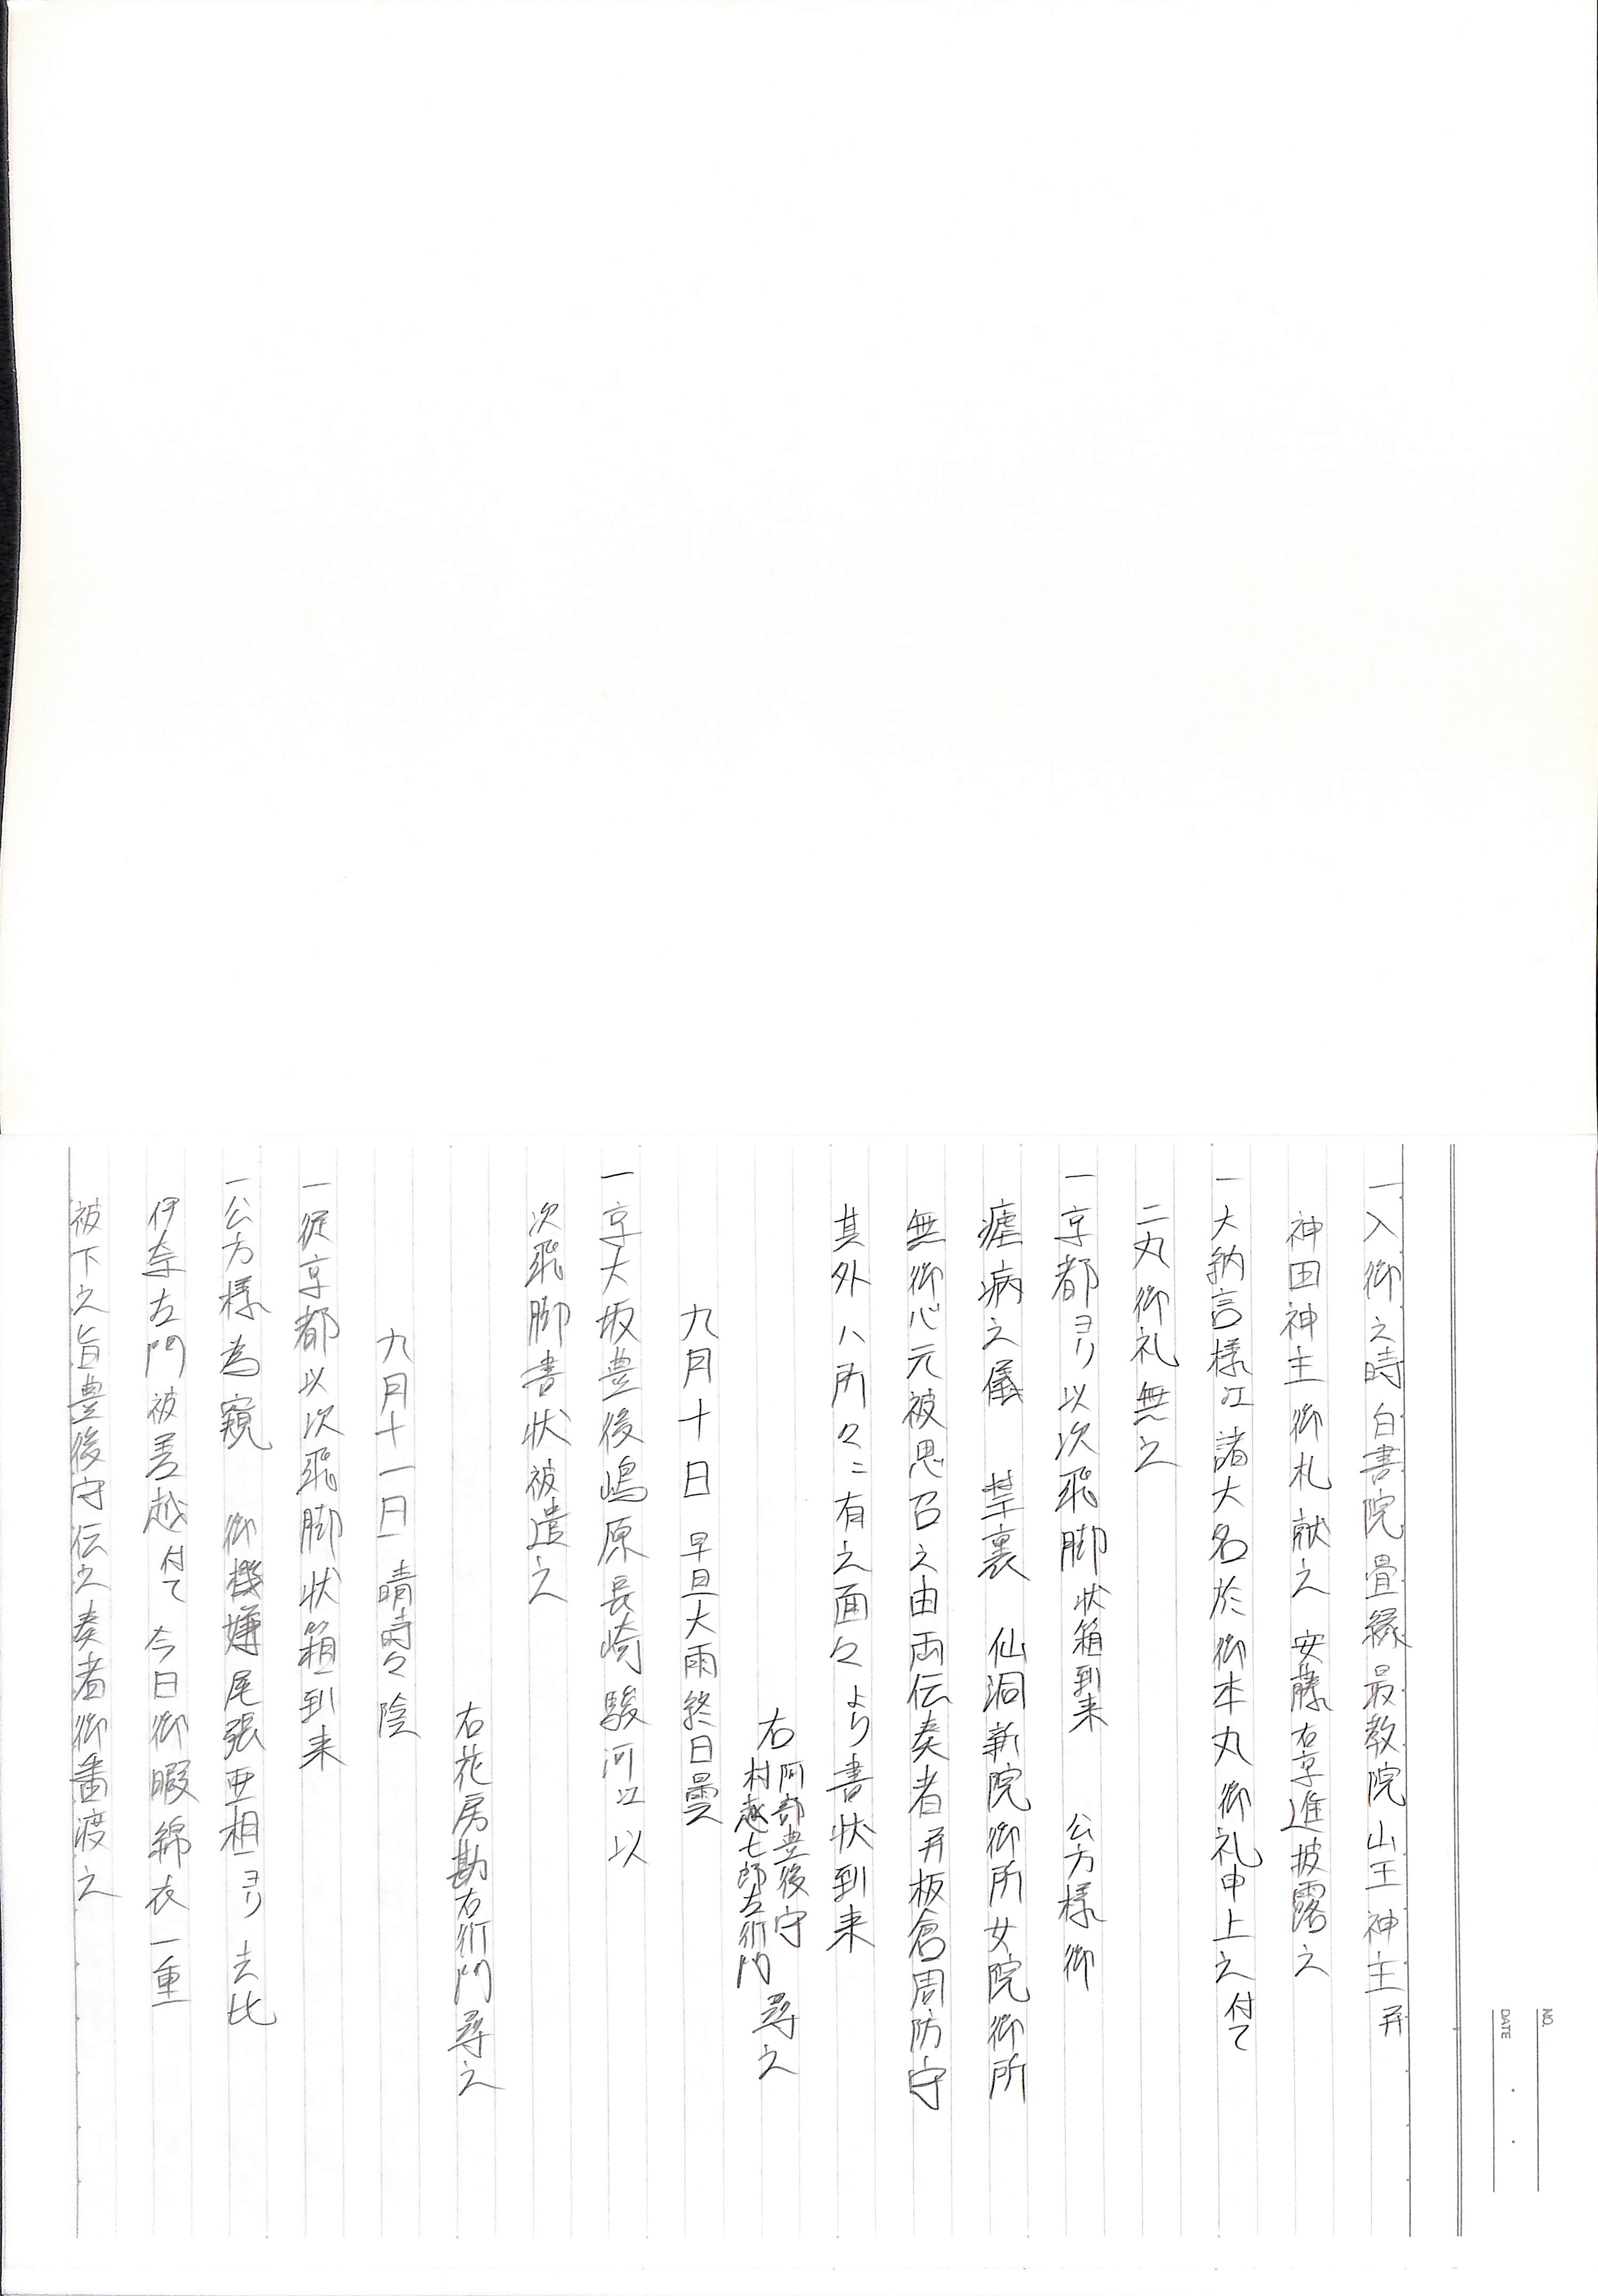 NO.
DATE
一入御之時白書院畳縁最教院山王神主并
神田神主御札献之安藤右京進披露之
一大納言様江諸大名於御本丸御礼申上之付て
二丸御礼無之
一京都ヨリ以次飛脚状箱到来　公方様御
瘧病之儀　禁裏　仙洞新院御所女院御所
無御心元被思召之由両伝奏者并板倉周防守
其外ハ所々ニ有之面々より書状到来
右 阿部豊後守 村越七郎左衛門 尋之
九月十日 早旦大雨終日曇
一京大坂豊後嶋原長崎駿河江以
次飛脚書状被遣之
右花房勘右衛門尋之
九月十一日 晴時々陰
一従京都以次飛脚状箱到来
一公方様為窺　御機嫌尾張亜相ヨリ去比
伊奈左門被差越付て今日御暇綿衣一重
被下之旨豊後守伝之奏者御番渡之